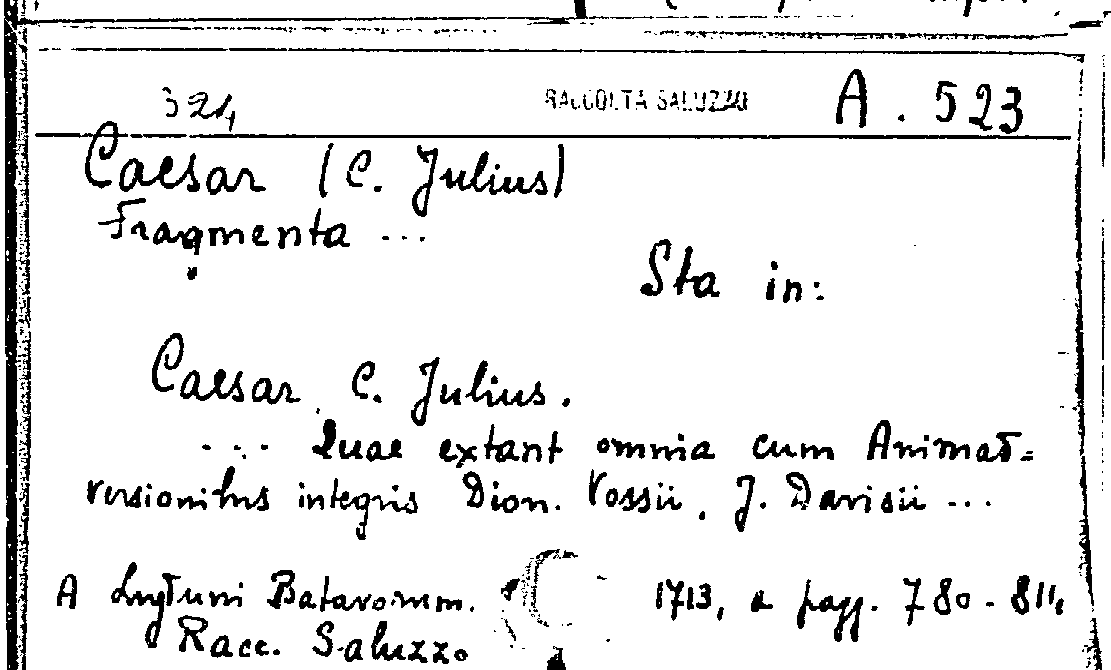 324 RACCOLTA SALUZZO A. 523
Caesar (C. Julius)
Fragmenta ...
Sta in:
Caesar C. Julius.
... Quae extant omnia cum Animad=
versionibus integris Dion. Vossii, J. Davisii ...
A Lugduni Batavorum. 1713, a pagg. 780-811,
Racc. Saluzzo